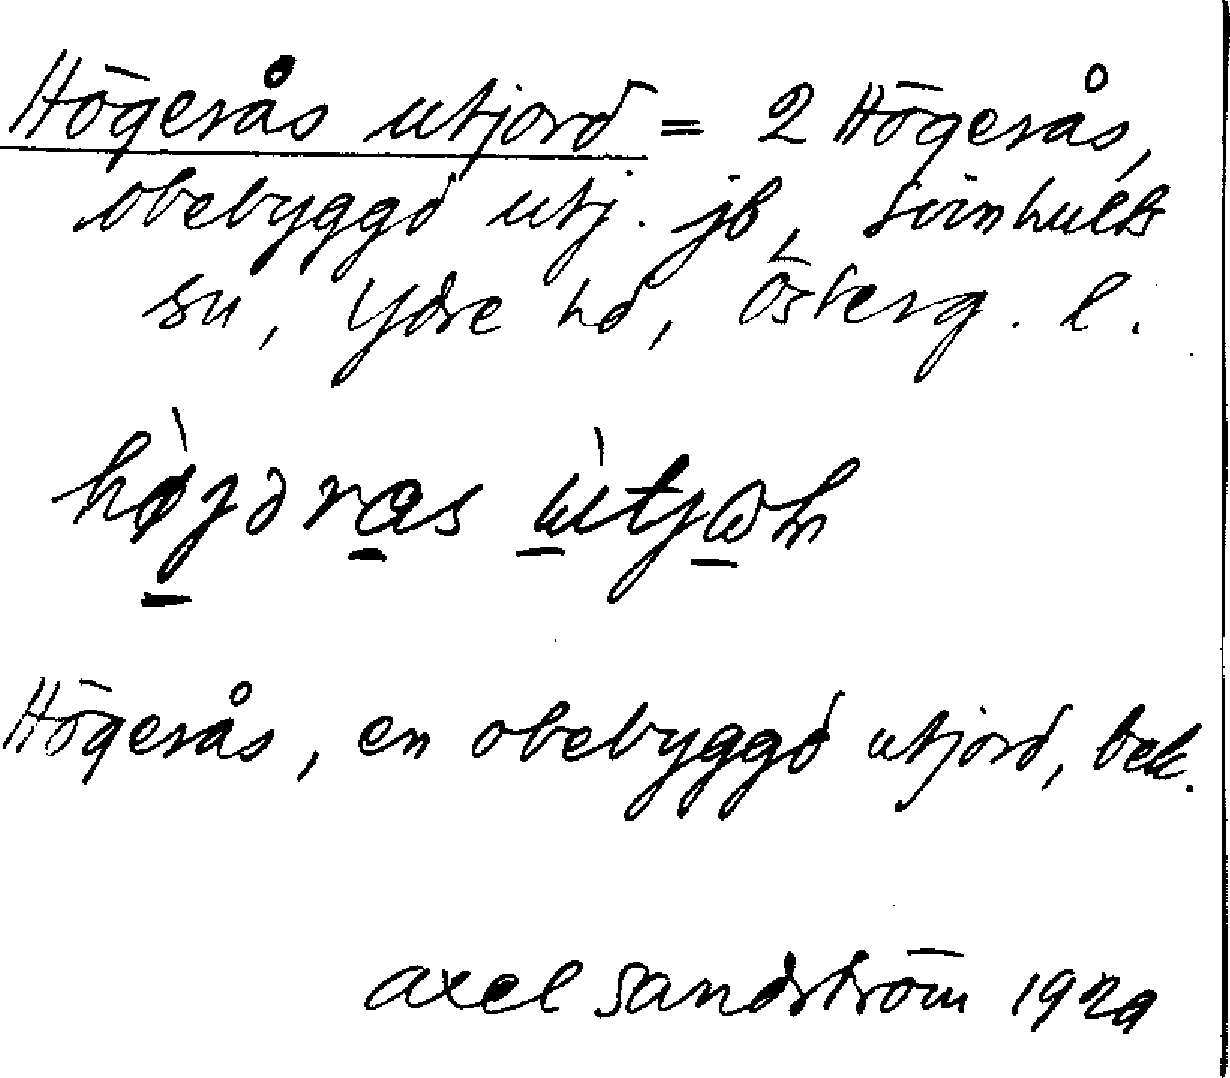 Högerås utjord = 2 Högerås,
obebyggd utj. jb, Svinhults
sn, Ydre hd, Österg. l.
Högerås, en obebyggd utjord, bek.
axel Sandström 1929